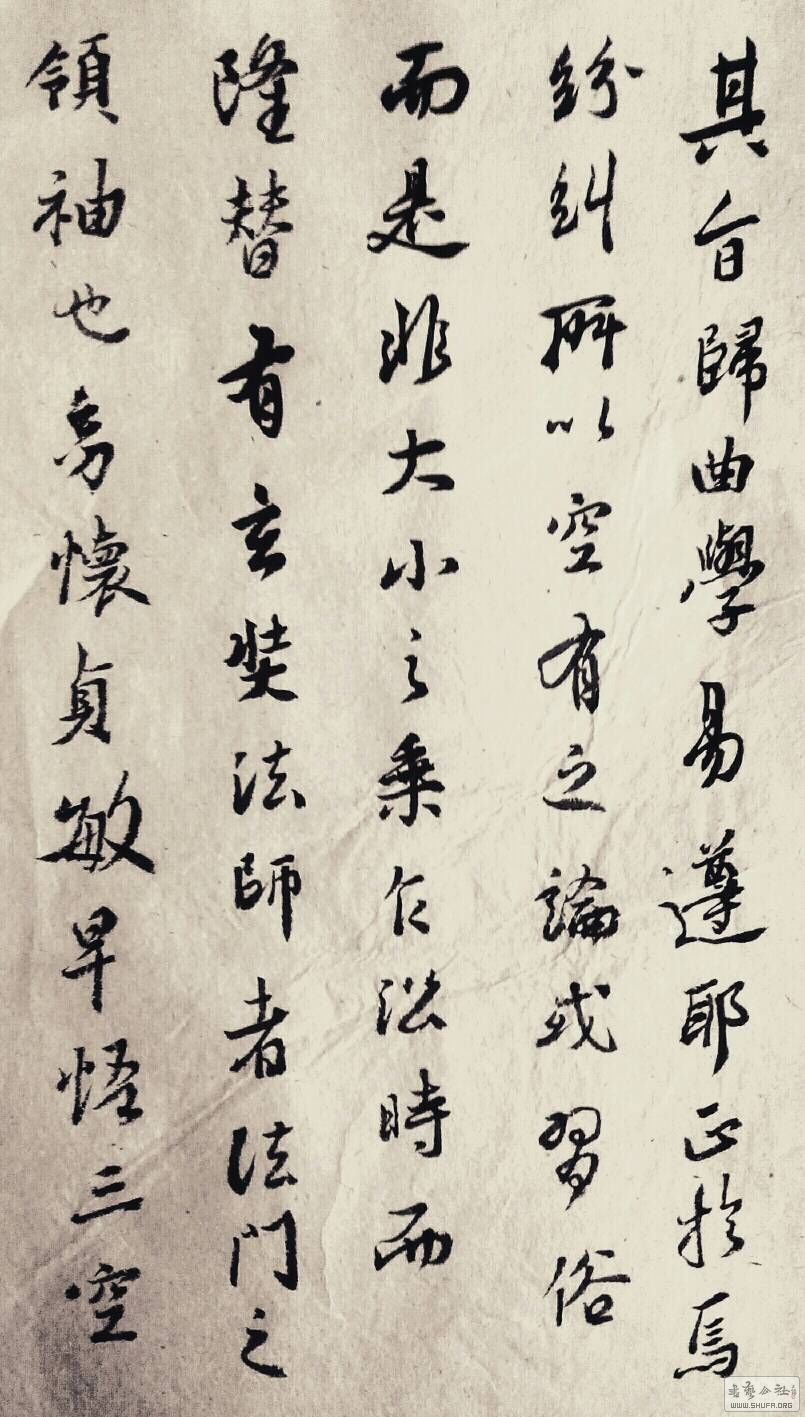 其旨歸曲學易遵耶正於焉
紛糾所以空有之論或習俗
而是非大小之乘乍沿時而
隆替有玄奘法師者法門之
領袖也幼懷貞敏早悟三空
書藝公社
WWW.SHUFA.ORG